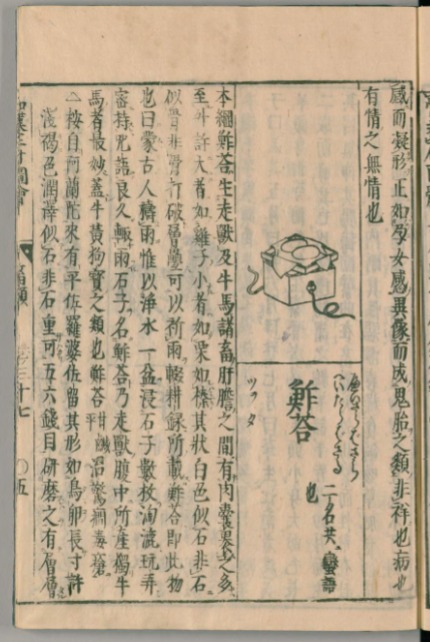 感而凝形正如孕女感異像而成鬼胎之類非祥也病也
有情之無情也
鮓荅
ツァタ
へいさらばさら
へいたらばさる
二名共蠻語
也
本綱鮓荅生走獸及牛馬諸畜肝膽之間有肉囊裹之多
至升許大者如雞子小者如栗如榛其狀白色似石非石
似骨非骨打破層疊可以祈雨輟耕録所載鮓荅即此物
也曰蒙古人禱雨惟以浄水一盆浸石子數枚淘漉玩弄
密持咒語良久輙雨石子名鮓荅乃走獸腹中所産獨牛
馬者最妙蓋牛黄狗寳之類也鮓荅甘鹹平治驚癇毒瘡
△按自阿蘭陀來有平佐羅婆佐留其形如鳥卵長寸許
淺褐色潤澤似石非石重可五六錢目研磨之有層層
和漢三才圖會
畜類
卷三十七
〇五